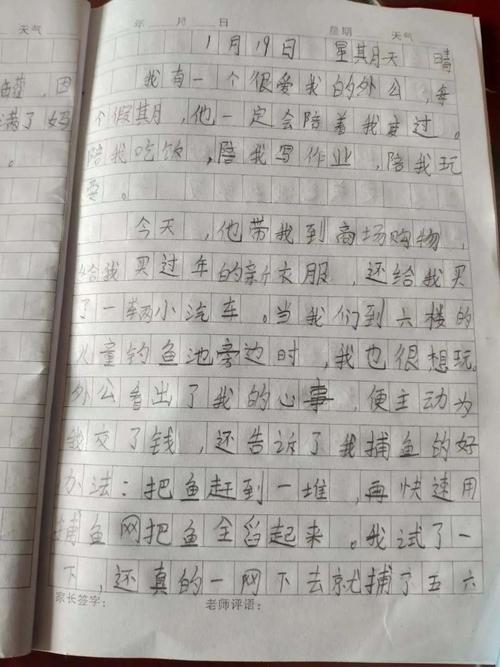 天气
年 月 日 星期 天气
1月19日 星其月天 晴
我有一个很爱我的外公,每
个假其月,他一定会陪着我度过。
陪我吃饭,陪我写作业,陪我玩
耍。
今天,他带我到商场购物,
给我买过年的新衣服,还给我买
了一辆小汽车。当我们到六楼的
儿童钓鱼池旁边时,我也很想玩
外公看出了我的心事,便主动为
我交了钱,还告诉了我捕鱼的好
办法:把鱼赶到一堆,再快速用
捕鱼网把鱼全舀起来。我试了一
下,还真的一网下去就捕了五六
家长签字: 老师评语:
因
满了妈
。